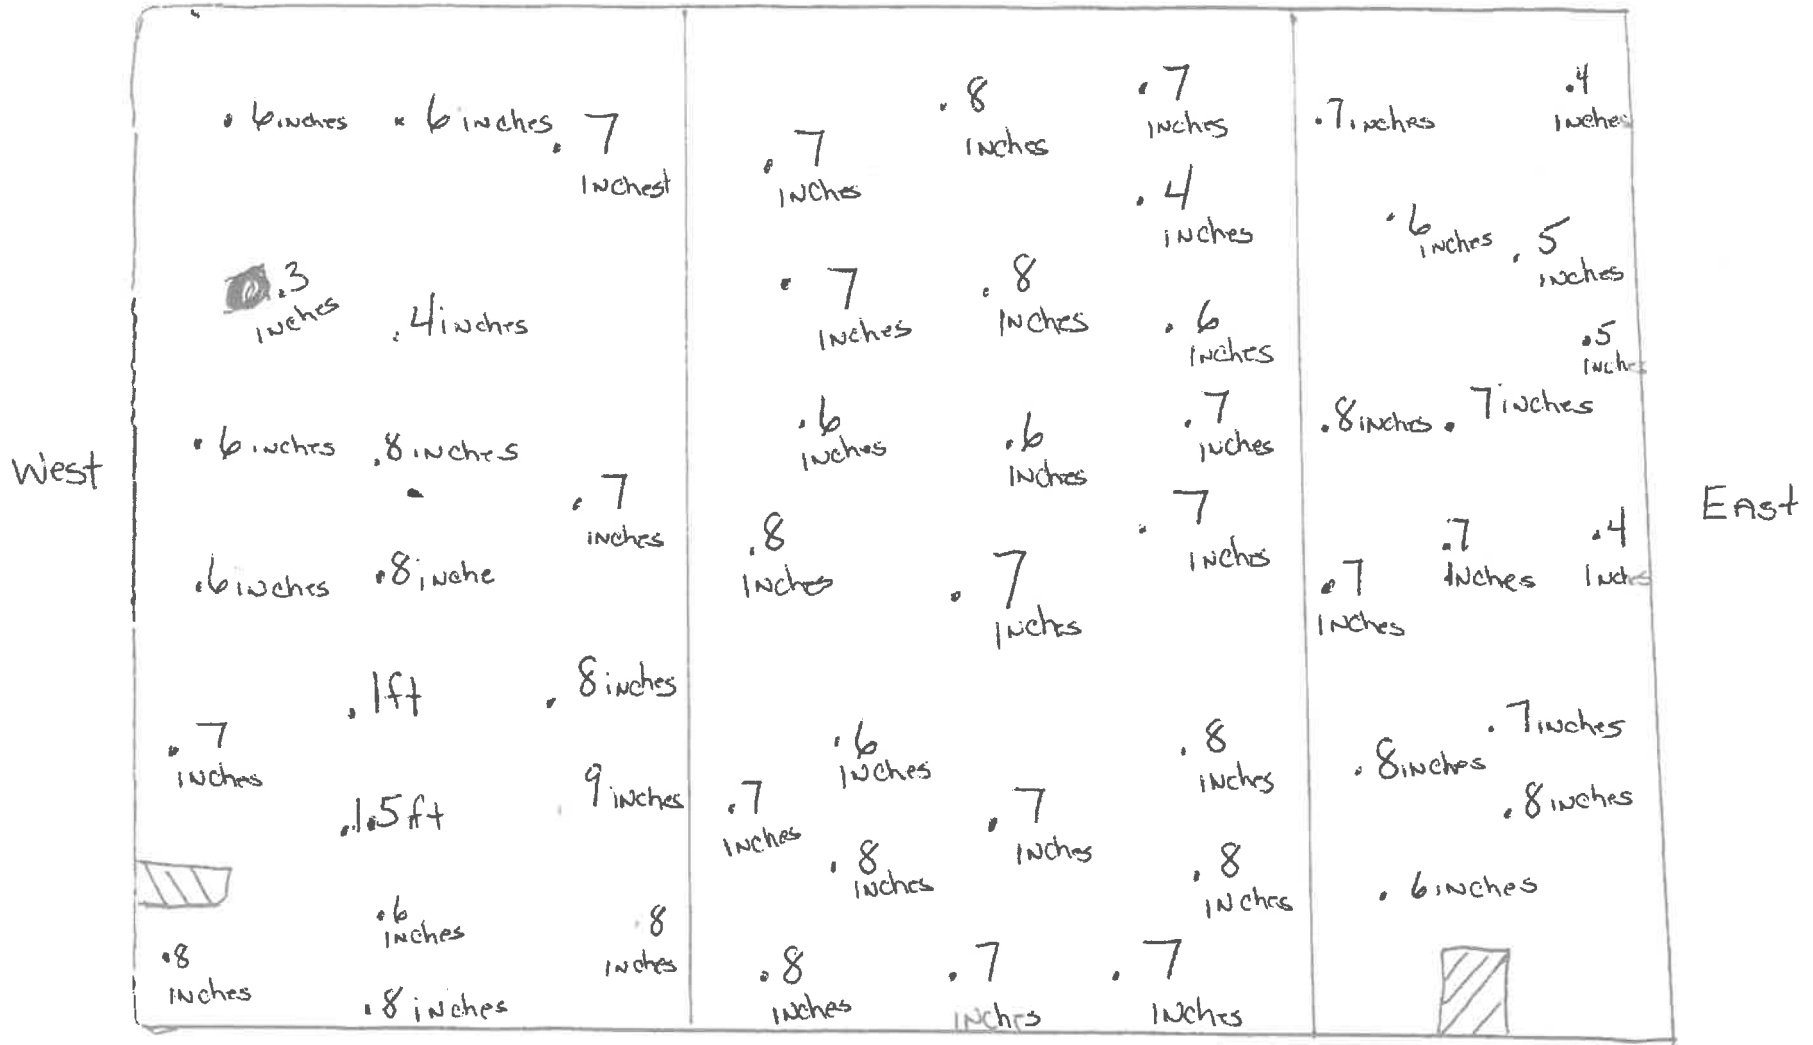 West
. 6 inches
. 6 inches
. 7
inches
.3
inches
.4 inches
. 6 inches
.8 inches
. 7
inches
.6 inches
.8 inche
. 1ft
. 8 inches
. 7
inches
.1.5 ft
9 inches
.6
inches
.8
inches
.8
inches
.8 inches
. 7
inches
. 8
inches
. 7
inches
. 4
inches
. 7
inches
. 8
inches
. 6
inches
.6
inches
.6
inches
.7
inches
.8
inches
. 7
inches
. 7
inches
.6
inches
. 8
inches
.7
inches
. 7
inches
. 8
inches
. 8
inches
. 8
inches
. 7
inches
. 7
inches
.7 inches
.4
inches
. 6
inches
. 5
inches
.5
inches
.8 inches
. 7 inches
.7
inches
.7
inches
.4
inches
. 7 inches
. 8 inches
. 8 inches
. 6 inches
East